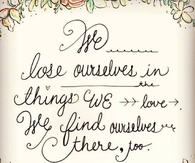 We
lose ourselves in
the
things we love.
We find ourselves
there, too.